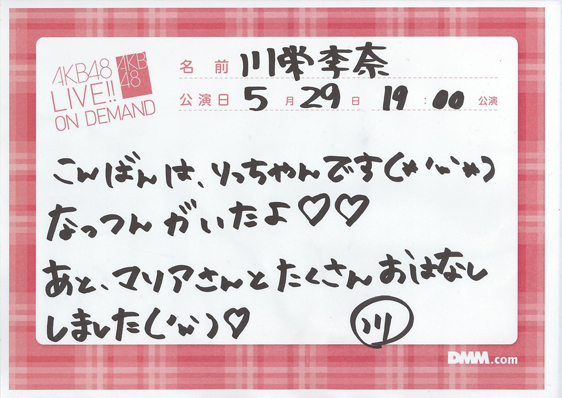 AKB48
LIVE!!
ON DEMAND
AKB
48
名前 川栄李奈
公演日 5月29日 19:00公演
こんばんは、りっちゃんです(*'ω'*)
なっつんがいたよ♡♡
あと、マリアさんとたくさんおはなし
しました('ω')♡
川
DMM.com